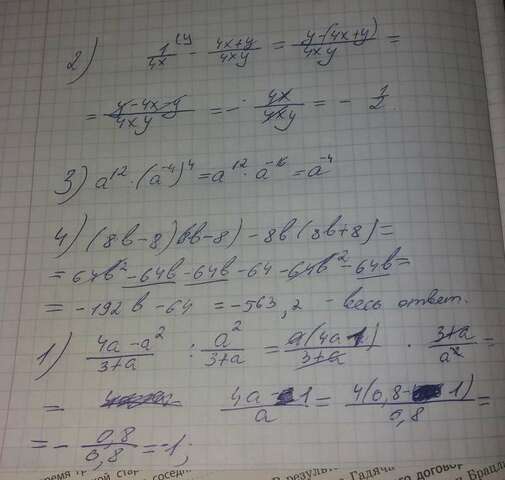 2) 1/4x (y - 4x+y/4xy = y-(4x+y)/4xy =
= y-4x-y/4xy = - 4x/4xy = - 1/2
3) a^12 · (a^-4)^4 = a^12 · a^-16 = a^-4
4) (8b-8)(8b-8) - 8b(8b+8) =
= 64b^2 - 64b - 64b - 64 - 64b^2 - 64b =
= -192b - 64 = -563,2 - весь ответ.
1) 4a-a^2/3+a : a^2/3+a = a(4a-1)/3+a · 3+a/a^2 =
= 4a-1/a = 4(0,8-1)/0,8 =
= - 0,8/0,8 = -1;
время тр
старой
В результа
Гадяча
договор